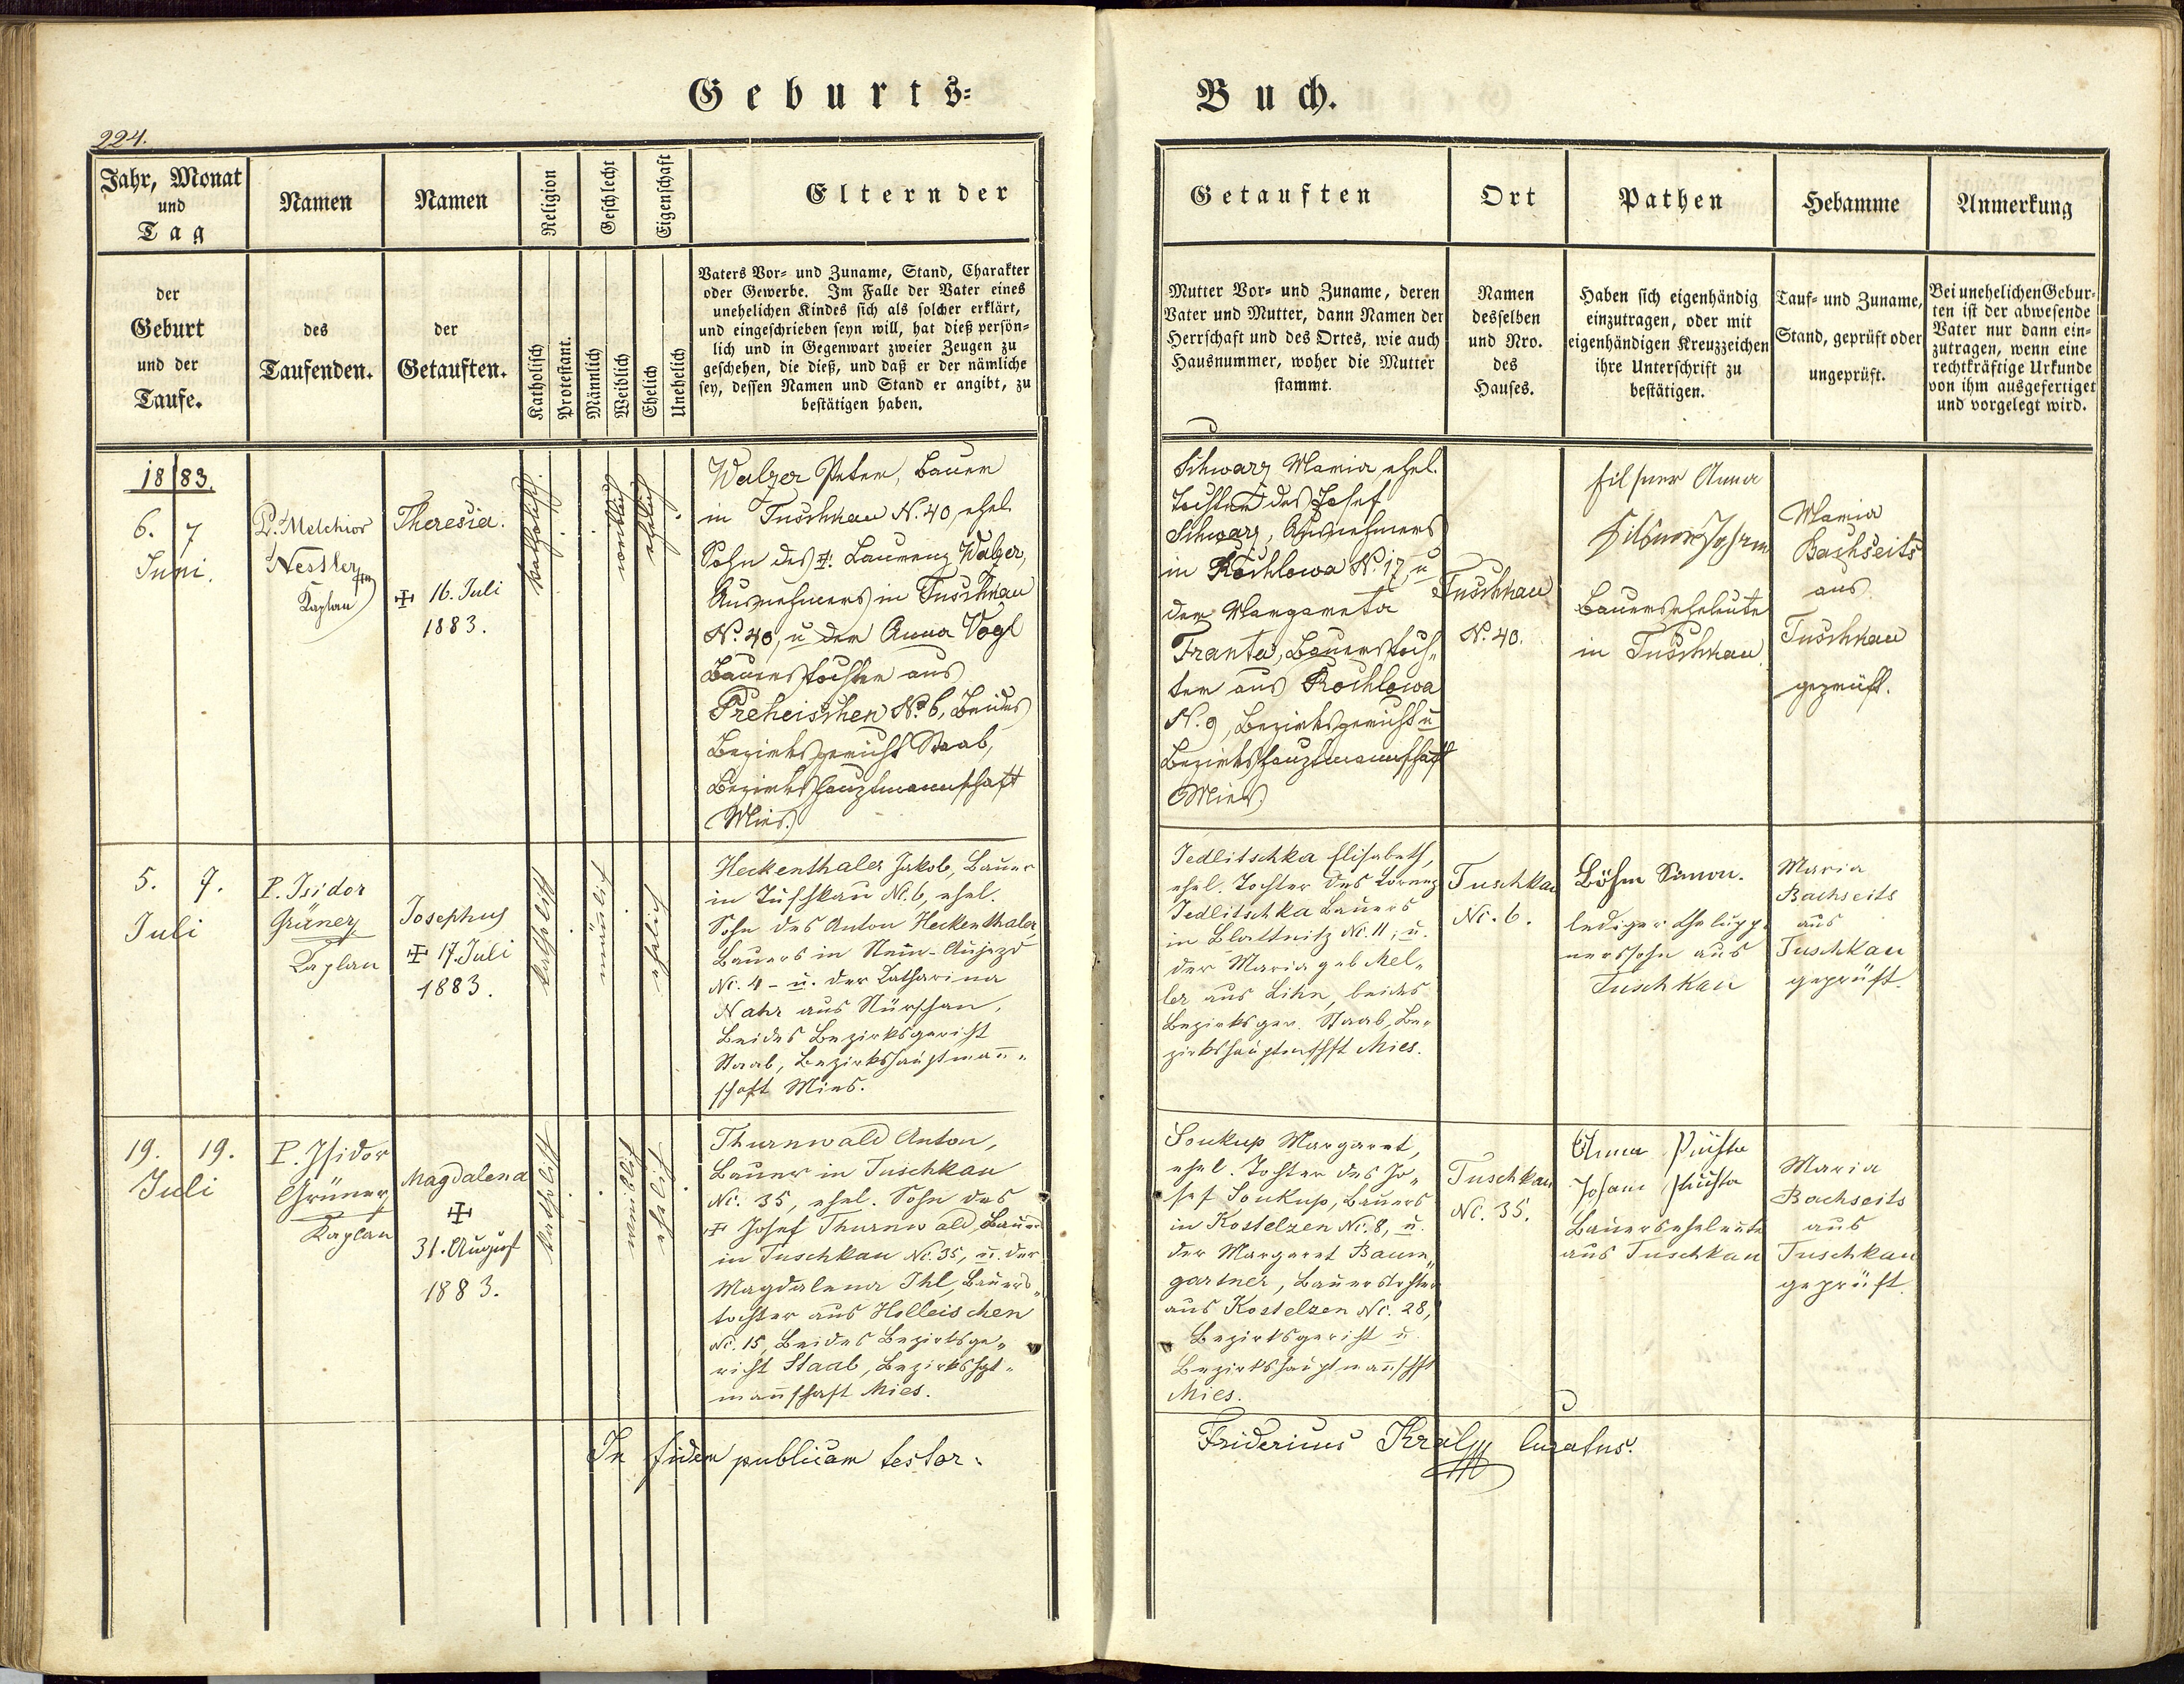 Geburts=
Buch.
224.
Jahr, Monat
und
Tag
Namen
Namen
Religion
Geschlecht
Eigenschaft
Eltern der
der
Geburt
und der
Taufe.
des
Taufenden.
der
Getauften.
Katholisch
Protestant.
Männlich
Weiblich
Ehelich
Unehelich
Vaters Vor- und Zuname, Stand, Charakter
oder Gewerbe. Im Falle der Vater eines
unehelichen Kindes sich als solcher erklärt,
und eingeschrieben seyn will, hat dieß persön-
lich und in Gegenwart zweier Zeugen zu
geschehen, die dieß, und daß er der nämliche
sey, dessen Namen und Stand er angibt, zu
bestätigen haben.
Getauften
Ort
Pathen
Hebamme
Anmerkung
Mutter Vor- und Zuname, deren
Vater und Mutter, dann Namen der
Herrschaft und des Ortes, wie auch
Hausnummer, woher die Mutter
stammt.
Namen
desselben
und Nro.
des
Hauses.
Haben sich eigenhändig
einzutragen, oder mit
eigenhändigen Kreuzzeichen
ihre Unterschrift zu
bestätigen.
Tauf- und Zuname,
Stand, geprüft oder
ungeprüft.
Bei unehelichen Gebur-
ten ist der abwesende
Vater nur dann ein-
zutragen, wenn eine
rechtkräftige Urkunde
von ihm ausgefertiget
und vorgelegt wird.
1883.
6. 7
Juni.
P. Melchior
Nessler
Kaplan
Theresia.
✠ 16. Juli
1883.
katholisch.
weiblich
ehelich
Walzer Peter, Bauer
in Tuschkau N. 40, ehel.
Sohn des ✠ Laurenz Walzer,
Ausnehmers in Tuschkau
No. 40, u der Anna Vogl
Bauerstochter aus
Preheischen No. 6, Beides
Bezirksgericht Staab,
Bezirkshauptmannschaft
Mies.
Schwarz Maria, ehel.
Tochter des Josef
Schwarz, Ausnehmers
in Rochlowa N. 17, u
der Margareta
Franta, Bauerstoch-
ter aus Rochlowa
N. 9, Bezirksgericht u
Bezirkshauptmannschaft
Mies.
Tuschkau
N. 40.
Filsner Anna
Bauerseheleute
in Tuschkau.
Maria
Bachseits
aus
Tuschkau
geprüft.
5. 7.
Juli
P. Isidor
Grüner
Kaplan
Josephus
✠ 17. Juli
1883.
katholisch
männlich
ehelich
Heckenthaler Jakob, Bauer
in Tuschkau Nc. 6, ehel.
Sohn des Anton Heckenthaler
Bauers in Neu-Aujezd
Nc. 4 - u. der Katharina
Nahr aus Nürschan,
Beides Bezirksgericht
Staab, Bezirkshauptmann-
schaft Mies.
Jedlitschka Elisabeth,
ehel. Tochter des Lorenz
Jedlitschka Bauers
in Blattnitz Nc. 11, u.
der Maria geb Mel-
ler aus Lihn, beides
Bezirksger. Staab, Be-
zirkshauptmschft Mies.
Tuschkau
Nc. 6.
Böhm Simon.
lediger Chalupp-
nerssohn aus
Tuschkau
Maria
Bachseits
aus
Tuschkau
geprüft.
19. 19.
Juli
P. Isidor
Grüner
Kaplan
Magdalena
✠
31. August
1883.
katholisch
weiblich
ehelich
Thurnwald Anton,
Bauer in Tuschkau
Nc. 35, ehel. Sohn des
✠ Josef Thurnwald, Bauer
in Tuschkau Nc. 35, u. der
Magdalena Ihl, Bauers-
tochter aus Holleischen
Nc. 15, Beides Bezirksge-
richt Staab, Bezirkshpt-
mannschaft Mies.
Soukup Margaret,
ehel. Tochter des Jo-
sef Soukup, Bauers
in Kostelzen Nc. 8, u.
der Margaret Baum-
gartner, Bauerstochter
aus Kostelzen Nc. 28,
Bezirksgericht u.
Bezirkshauptmannschft
Mies.
Tuschkau
Nc. 35.
Anna
Bauerseheleute
aus Tuschkau
Maria
Bachseits
aus
Tuschkau
geprüft.
In fidem publicam testor:
Fridericus Kral curatus.